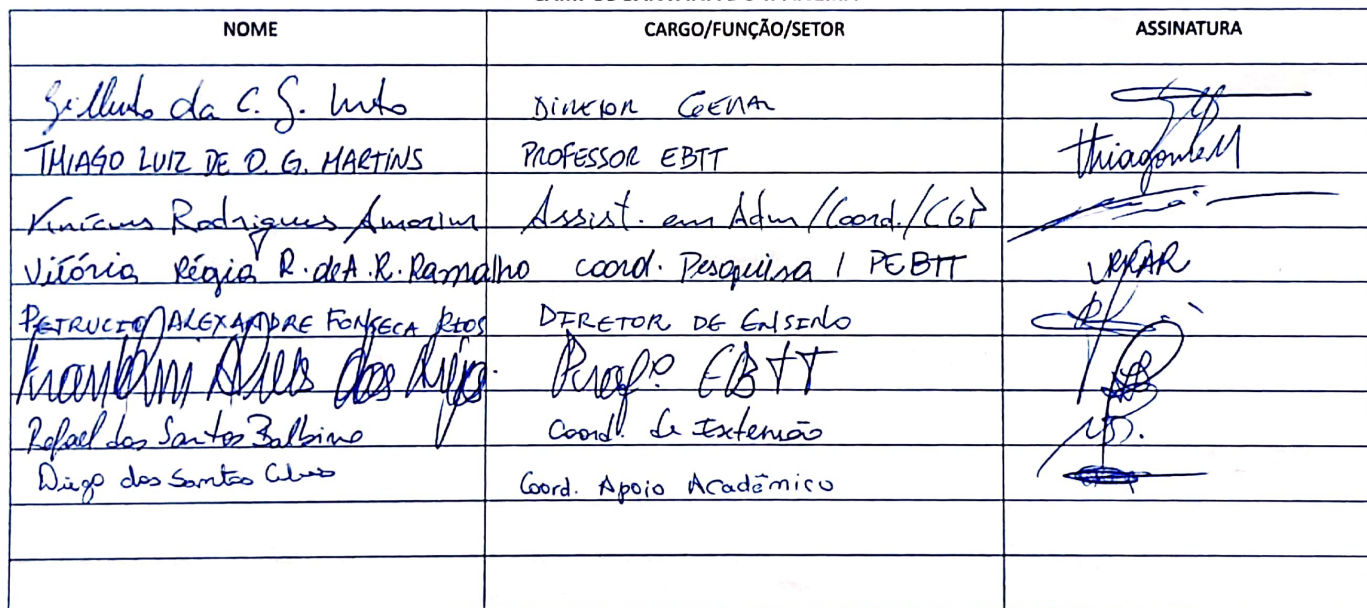 NOME CARGO/FUNÇÃO/SETOR ASSINATURA
da C. G. DIRETOR GERAL
THIAGO LUIZ DE O. G. MARTINS PROFESSOR EBTT
Vinícius Rodrigues Amorim Assist. em Adm/Coord./CGP
Vitória Régia R. de A. R. Ramalho coord. Pesquisa / PEBTT VRRAR
PETRUCIO ALEXANDRE FONSECA RIOS DIRETOR DE ENSINO
dos Profº EBTT
Rafael dos Santos Balbino Coord. de Extensão
Diego dos Santos Coord. Apoio Acadêmico